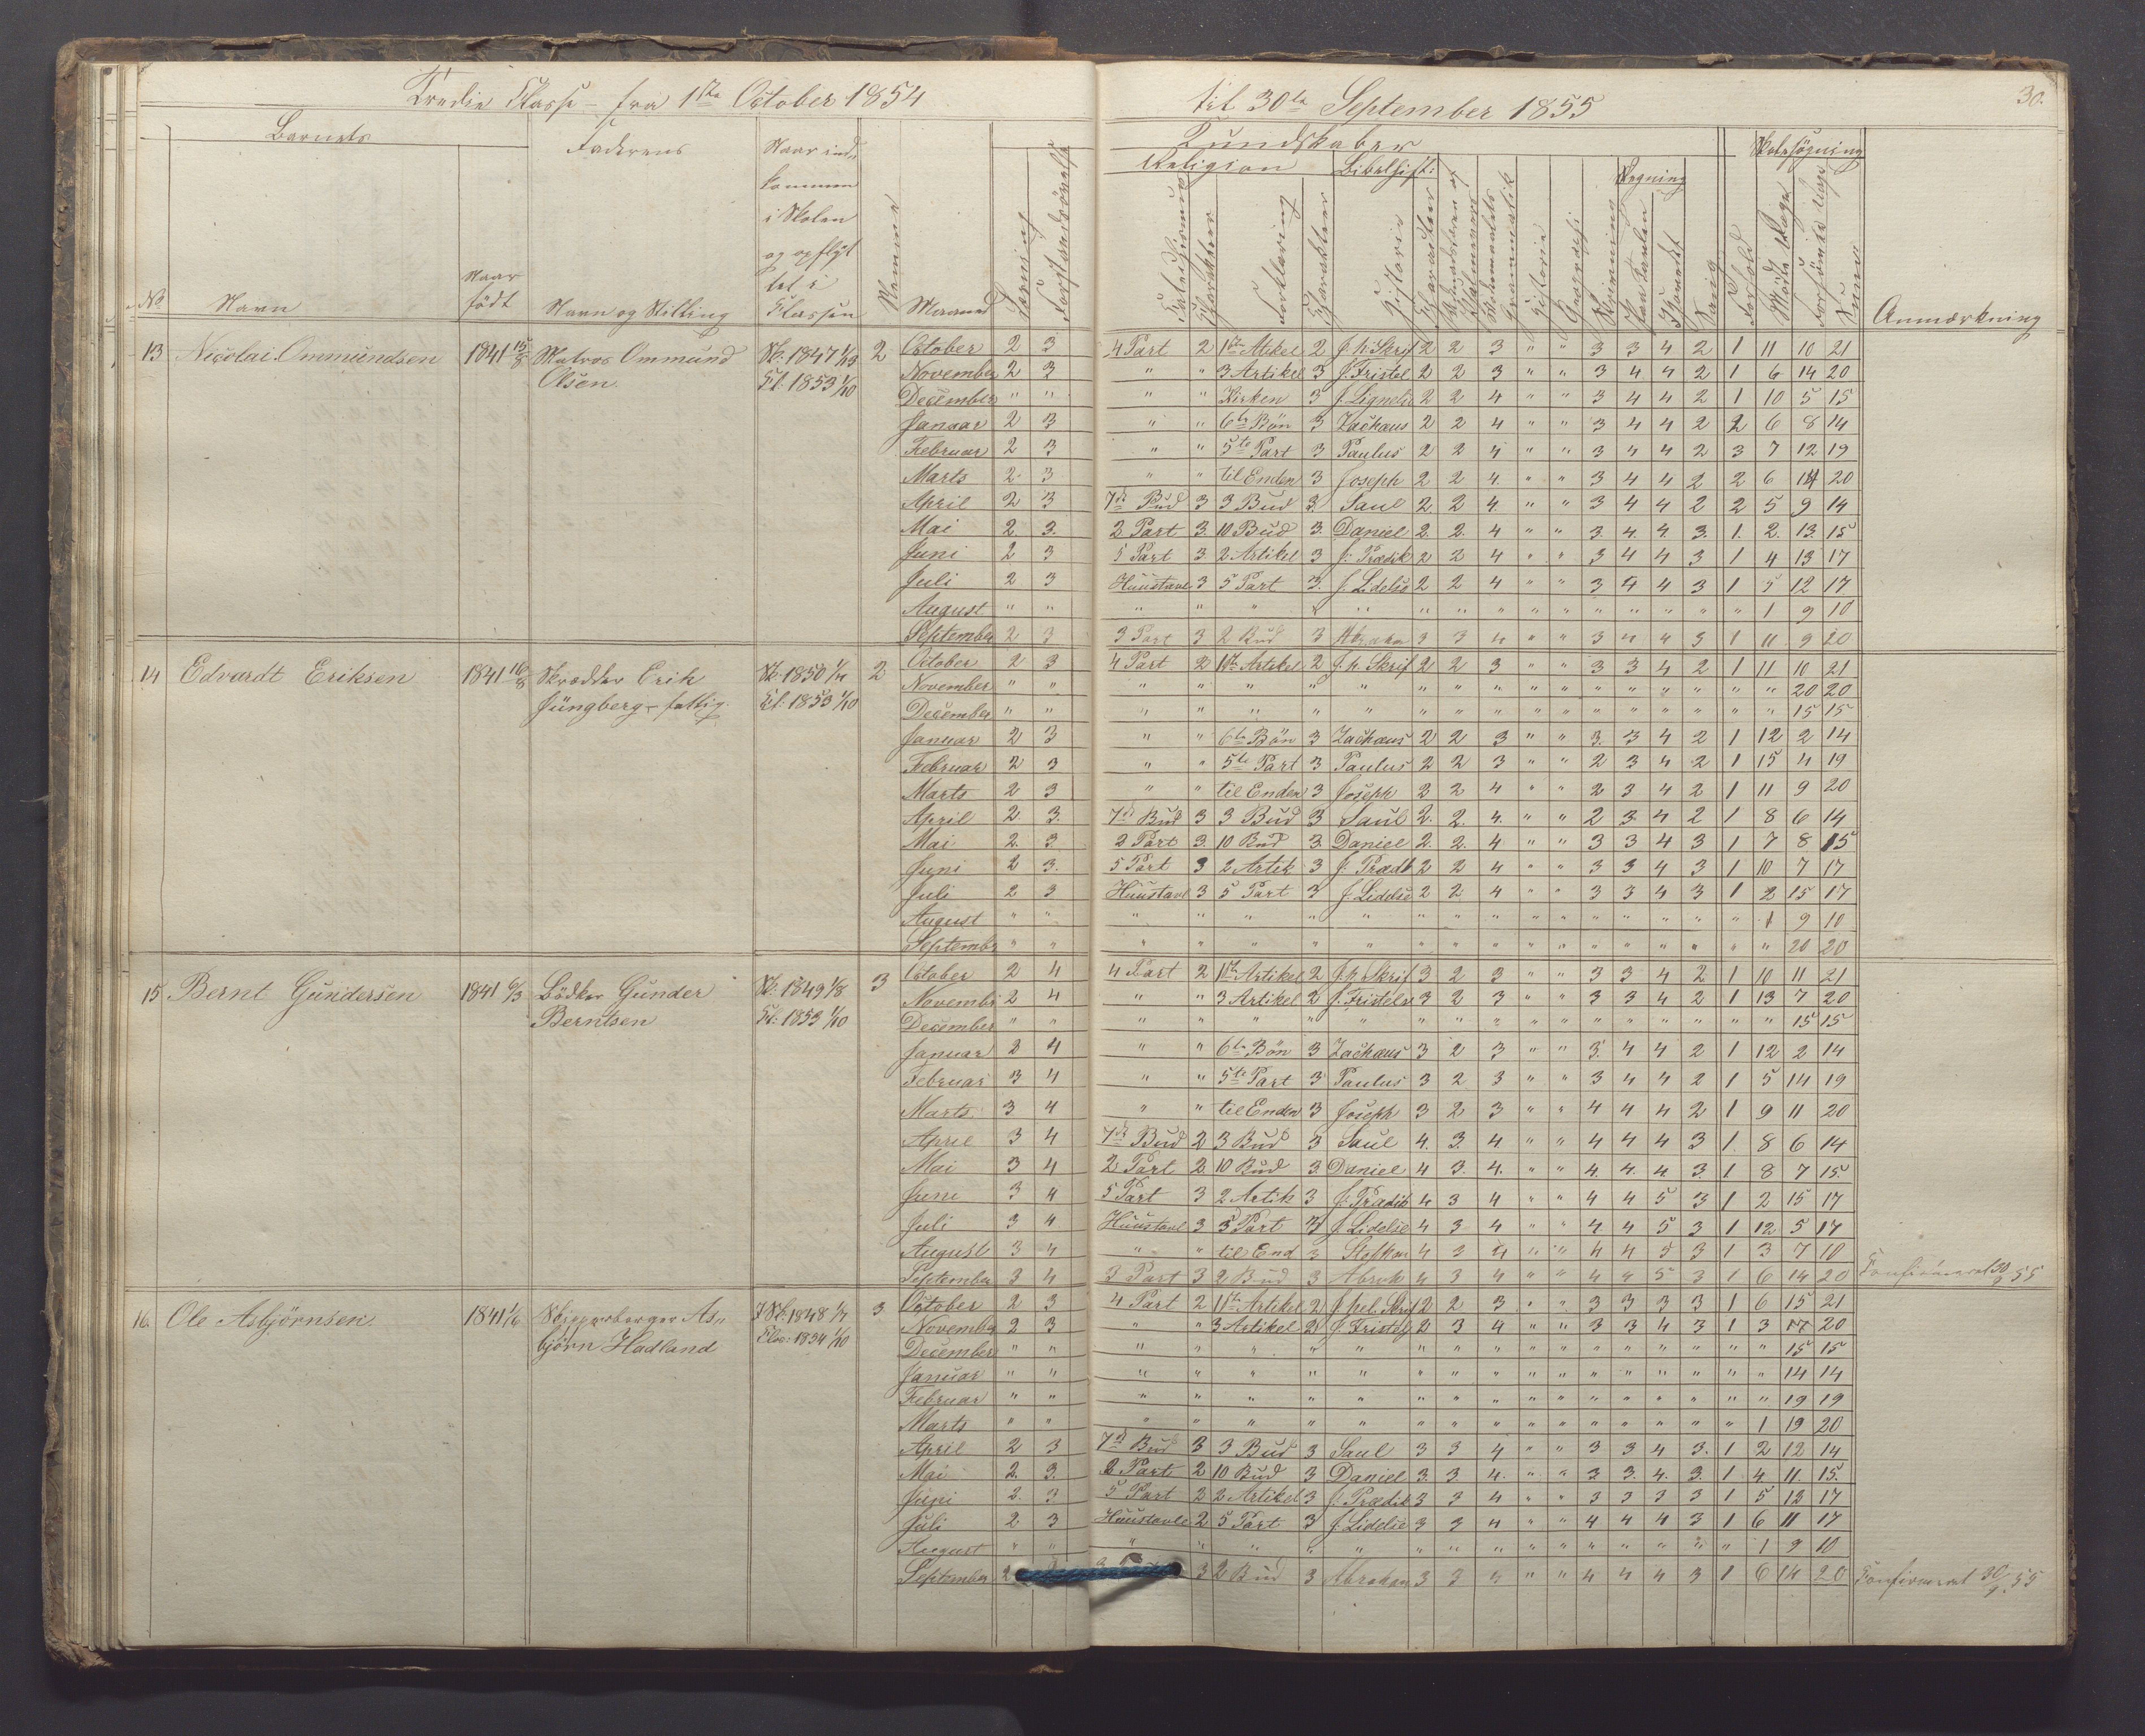 Tredie Klasse - fra 1ste October 1854
til 30te September 1855
30.
Barnets
Faderens
Naar ind-
kommen
i Skolen
og opflyt
tet i
Klassen
Nemme
Maaned
Kundskaber
Religion
Bibelhist:
Regning
Skolesøgning
No
Navn
Naar
født
Navn og Stilling
Anmærkning
13 Nicolai Ommundsen 1841 15/8 Matros Ommund Sk. 1847 1/9 2
Olsen Kl. 1853 1/10
October 2 3 4 Part 2 1ste Artikel 2 J. h. Skrif 2 2 3 " " 3 3 4 2 1 11 10 21
November 2 3 " " 3 Artikel 3 J. Fristel 2 2 3 " " 3 4 4 2 1 6 14 20
December " " " " Kirken 3 J. Lignels 2 2 4 " " 3 4 4 2 1 10 5 15
Januar 2 3 " " 6te Bön 3 Zachæus 2 2 4 " " 3 4 4 2 2 6 8 14
Februar 2 3 " " 5te Part 3 Paulus 2 2 4 " " 3 4 4 2 3 7 12 19
Marts 2 3 " " til Enden 3 Joseph 2 2 4 " " 3 4 4 2 2 6 14 20
April 2 3 7de Bud 3 3 Bud 3 Saul 2 2 4 " " 3 4 4 2 2 5 9 14
Mai 2 3 2 Part 3 10 Bud 3 Daniel 2 2 4 " " 3 4 4 3 1 2 13 15
Juni 2 3 5 Part 3 2 Artikel 3 J. Prædik 2 2 4 " " 3 4 4 3 1 4 13 17
Juli 2 3 Huustavl 3 5 Part 3 J. Lidelse 2 2 4 " " 3 4 4 3 1 5 12 17
August " " " " " " " " " " " " " " " " " 1 9 10
September 2 3 3 Part 3 2 Bud 3 Abraha 3 3 4 " " 3 4 4 3 1 11 9 20
14 Edvardt Eriksen 1841 16/8 Skrædder Erik Sk. 1850 1/4 2
Jüngberg - fattig. Kl. 1853 1/10
October 2 3 4 Part 2 1ste Artikel 2 J. h. Skrif 2 2 3 " " 3 3 4 2 1 11 10 21
November " " " " " " " " " " " " " " " " " " 20 20
December " " " " " " " " " " " " " " " " " " 15 15
Januar 2 3 " " 6te Bön 3 Zachæus 2 2 3 " " 3 3 4 2 1 12 2 14
Februar 2 3 " " 5te Part 3 Paulus 2 2 3 " " 2 3 4 2 1 15 4 19
Marts 2 3 " " til Enden 3 Joseph 2 2 4 " " 2 3 4 2 1 11 9 20
April 2 3 7de Bud 3 3 Bud 3 Saul 2 2 4 " " 2 3 4 2 1 8 6 14
Mai 2 3 2 Part 3 10 Bud 3 Daniel 2 2 4 " " 3 3 4 3 1 7 8 15
Juni 2 3 5 Part 3 2 Artik 3 J. Prædk 2 2 4 " " 3 3 4 3 1 10 7 17
Juli 2 3 Huustavl 3 5 Part 3 J. Lidelse 2 2 4 " " 3 3 4 3 1 2 15 17
August " " " " " " " " " " " " " " " " " 1 9 10
Septembr " " " " " " " " " " " " " " " " " " 20 20
15 Bernt Gundersen 1841 6/3 Bödker Gunder Sk. 1849 1/8 3
Berntsen Kl. 1853 1/10
October 2 4 4 Part 2 1ste Artikel 2 J. h. Skrif 3 2 3 " " 3 3 4 2 1 10 11 21
Novembr 2 4 " " 3 Artikel 2 J. Fristelse 3 2 3 " " 3 3 4 2 1 13 7 20
December " " " " " " " " " " " " " " " " " " 15 15
Januar 2 4 " " 6te Bön 3 Zachæus 3 2 3 " " 3 4 4 2 1 12 2 14
Februar 3 4 " " 5te Part 3 Paulus 3 2 3 " " 3 4 4 2 1 5 14 19
Marts 3 4 " " til Enden 3 Joseph 3 2 3 " " 4 4 4 2 1 9 11 20
April 3 4 7de Bud 2 3 Bud 3 Saul 4 3 4 " " 4 4 4 3 1 8 6 14
Mai 3 4 2 Part 2 10 Bud 3 Daniel 4 3 4 " " 4 4 4 3 1 8 7 15
Juni 3 4 5 Part 3 2 Artik 3 J. Prædik 4 3 4 " " 4 4 5 3 1 2 15 17
Juli 3 4 Huustavl 3 5 Part 3 J. Lidelse 4 3 4 " " 4 4 5 3 1 12 5 17
August 3 4 " " til End 3 Stephan 4 3 4 " " 4 4 5 3 1 3 7 10
September 3 4 3 Part 3 2 Bud 3 Abrah 4 3 4 " " 4 4 5 3 1 6 14 20 Confirmeret 30/9 55
16 Ole Asbjörnsen 1841 1/6 Skipperborger As- I Sk. 1848 1/4 3
björn Hadland Klas: 1854 1/10
October 2 3 4 Part 2 1ste Artikel 2 J. hel. Skrif 2 2 3 " " 3 3 3 3 1 6 15 21
Novembe 2 3 " " 3 Artikel 2 J. Fristels 2 3 4 " " 3 3 4 3 1 3 17 20
December " " " " " " " " " " " " " " " " " " 15 15
Januar " " " " " " " " " " " " " " " " " " 14 14
Februar " " " " " " " " " " " " " " " " " " 19 19
Marts " " " " " " " " " " " " " " " " " 1 19 20
April 2 3 7de Bud 3 3 Bud 3 Saul 3 3 4 " " 3 3 4 3 1 2 12 14
Mai 2 3 2 Part 2 10 Bud 3 Daniel 3 3 4 " " 3 3 4 3 1 4 11 15
Juni 2 3 5 Part 2 2 Artikel 3 J. Prædik 3 3 4 " " 3 3 3 3 1 5 12 17
Juli 2 3 Huustavle 2 5 Part 3 J. Lidelse 3 3 4 " " 4 4 4 3 1 6 11 17
August " " " " " " " " " " " " " " " " " 1 9 10
September 2 3 2 Bud 3 Abraham 3 3 4 " " 4 4 4 3 1 6 14 20 Confirmeret 30/9 55